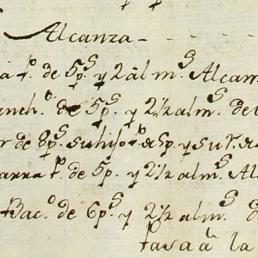 Alcanza
a pº. de 5ps. y 2 alms. Alcan
de 5ps. y 2½ alms. de
r de 8ps. su hijo de 5p. y su
arra pº. de 5p. y 2½ alms. Al
Bacº. de 6ps. y 2½ alms. d
tasa a la